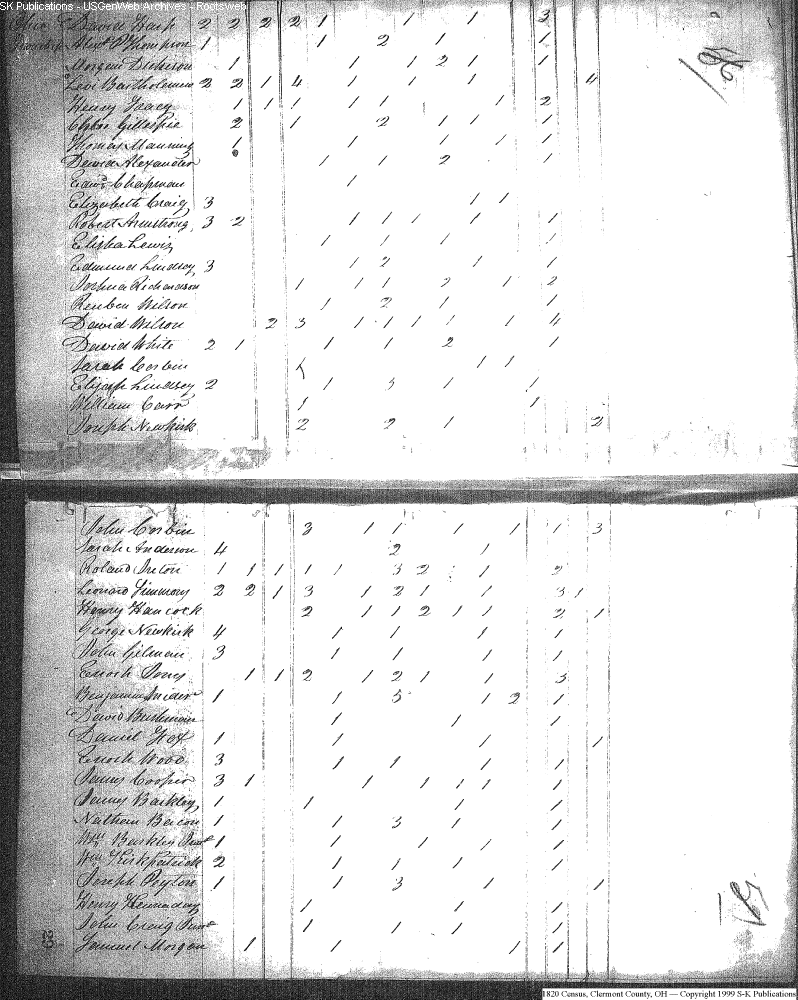 SK Publications - USGenWeb Archives - Rootsweb
David 2 2 2 2 1 1 1 3
Thompson 1 1 2 1 1
Morgan Dickison 1 1 1 2 1 1
Levi Bartholomew 2 2 1 4 1 1 1 1 4
Henry Tracy 1 1 1 1 1 1 2
Gillespie 2 1 2 1 1 1
Thomas Manning 1 1 1 1 1
David Alexander 1 1 2 1
Edwd Chapman 1
Elizabeth Craig 3 1 1
Robert Armstrong 3 2 1 1 1 1 1
Elisha Lewis 1 1 1 1
Edmund Lindsey 3 1 2 1 1
Joshua Richardson 1 1 1 2 1 2
Reuben Wilson 1 2 1 1
David Wilson 2 3 1 1 1 1 1 4
David White 2 1 1 1 2 1
Sarah Corbin 1 1
Elijah Lindsey 2 1 3 1 1
William Carr 1 1
Joseph Newkirk 2 2 1 2
John Corbin 3 1 1 1 1 1 3
Sarah Anderson 4 2 1
Roland 1 1 1 1 1 3 2 1 2
Leonard Simmons 2 2 1 3 1 2 1 1 3 1
Henry Hancock 2 1 1 2 1 1 2 1
George Newkirk 4 1 1 1 1
John Gilman 3 1 1 1 1
Enoch 1 1 2 1 2 1 1 3
Benjamin 1 1 3 1 2 1
David Bushman 1 1 1
Daniel 1 1 1 1
Enoch Wood 3 1 1 1 1
James Cooper 3 1 1 1 1 1 1
Barkley 1 1 1 1
Nathan Beacon 1 1 3 1 1
Wm Barkley 1 1 1 1 1
Wm Kirkpatrick 2 1 1 1 1
Joseph Peyton 1 1 3 1 1
Henry 1 1 1
John Craig 1 1 1 1
Samuel Morgan 1 1 1 1
1820 Census, Clermont County, OH — Copyright 1999 S-K Publications